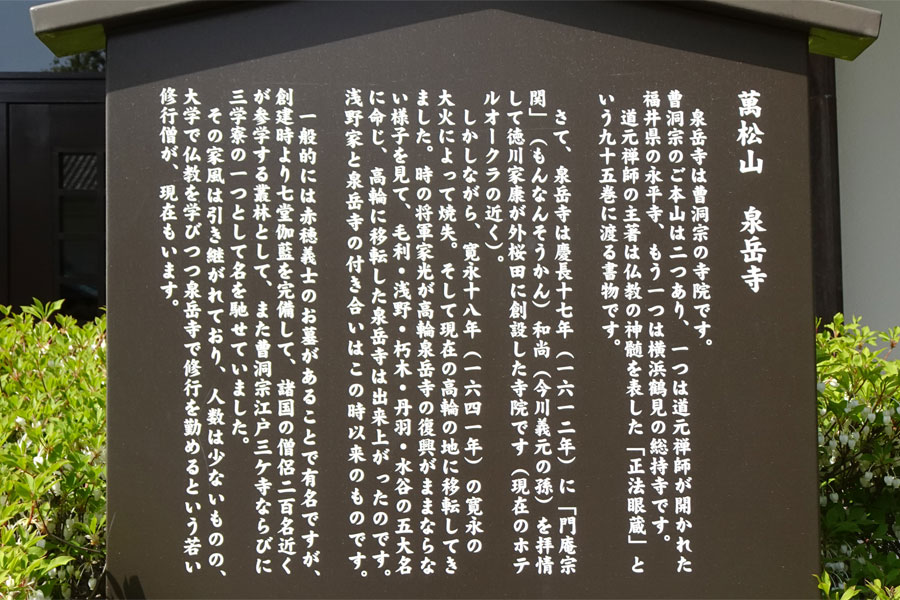 萬松山　泉岳寺
泉岳寺は曹洞宗の寺院です。
曹洞宗のご本山は二つあり、一つは道元禅師が開かれた
福井県の永平寺、もう一つは横浜鶴見の総持寺です。
道元禅師の主著は仏教の神髄を表した「正法眼蔵」と
いう九十五巻に渡る書物です。
さて、泉岳寺は慶長十七年（一六一二年）に「門庵宗
関」（もんなんそうかん）和尚（今川義元の孫）を拝情
して徳川家康が外桜田に創設した寺院です（現在のホテ
ルオークラの近く）。
しかしながら、寛永十八年（一六四一年）の寛永の
大火によって焼失。そして現在の高輪の地に移転してき
ました。時の将軍家光が高輪泉岳寺の復興がままならな
い様子を見て、毛利・浅野・朽木・丹羽・水谷の五大名
に命じ、高輪に移転した泉岳寺は出来上がったのです。
浅野家と泉岳寺の付き合いはこの時以来のものです。
一般的には赤穂義士のお墓があることで有名ですが、
創建時より七堂伽藍を完備して、諸国の僧侶二百名近く
が参学する叢林として、また曹洞宗江戸三ケ寺ならびに
三学寮の一つとして名を馳せていました。
その家風は引き継がれており、人数は少ないものの、
大学で仏教を学びつつ泉岳寺で修行を勤めるという若い
修行僧が、現在もいます。